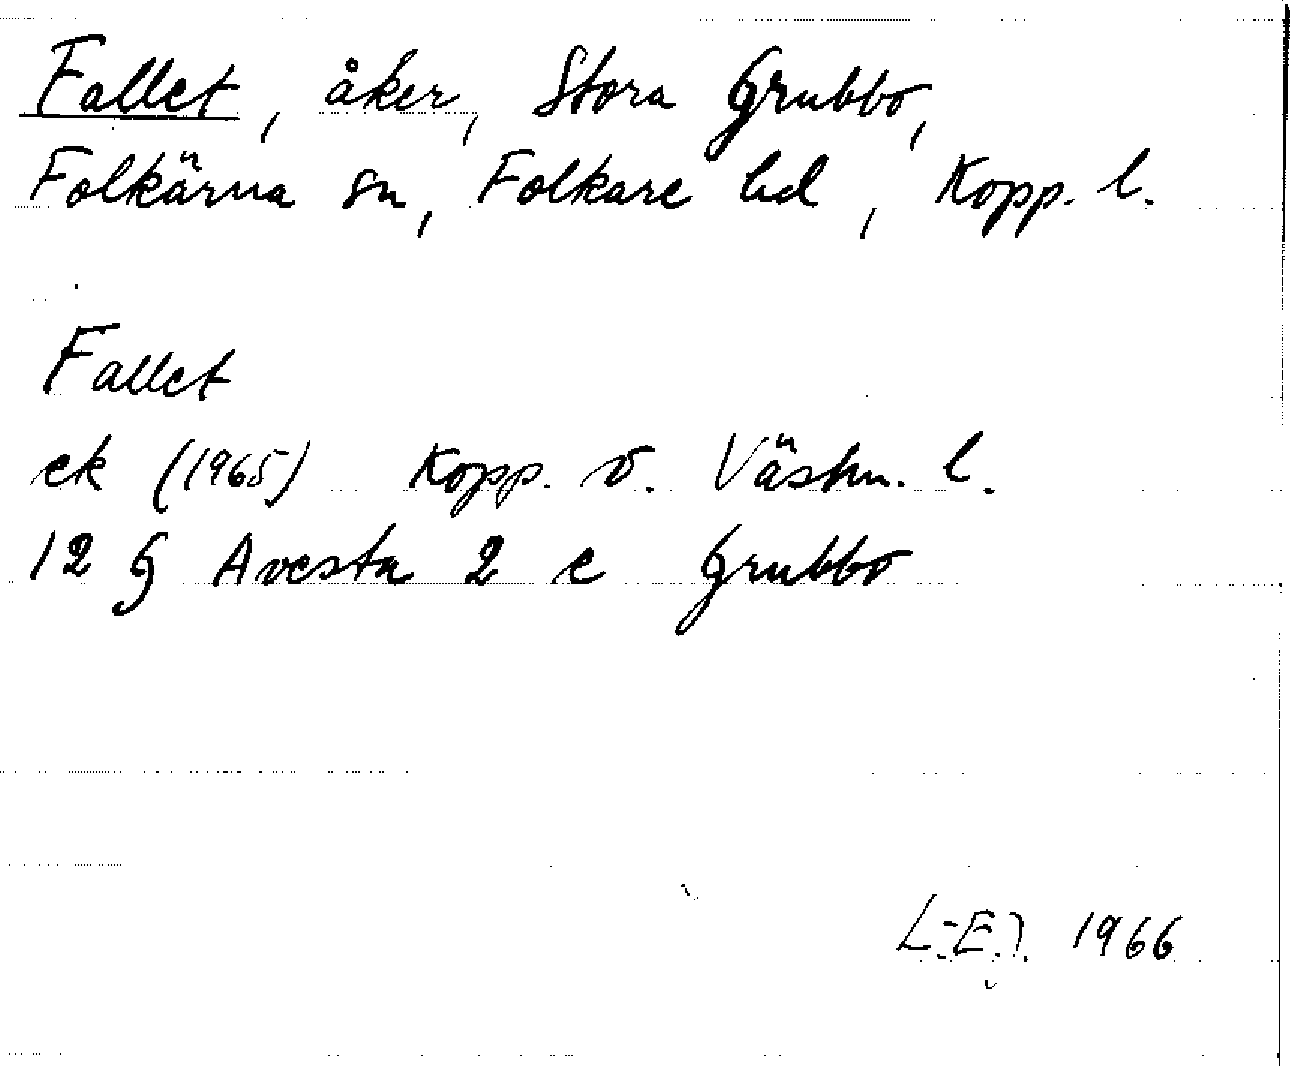 Fallet, åker, Stora Grubbo,
Folkärna sn, Folkare hd, Kopp. l.
Fallet
ek (1965) Kopp. o. Västm. l.
12 G Avesta 2 e Grubbo
L-E. 1966